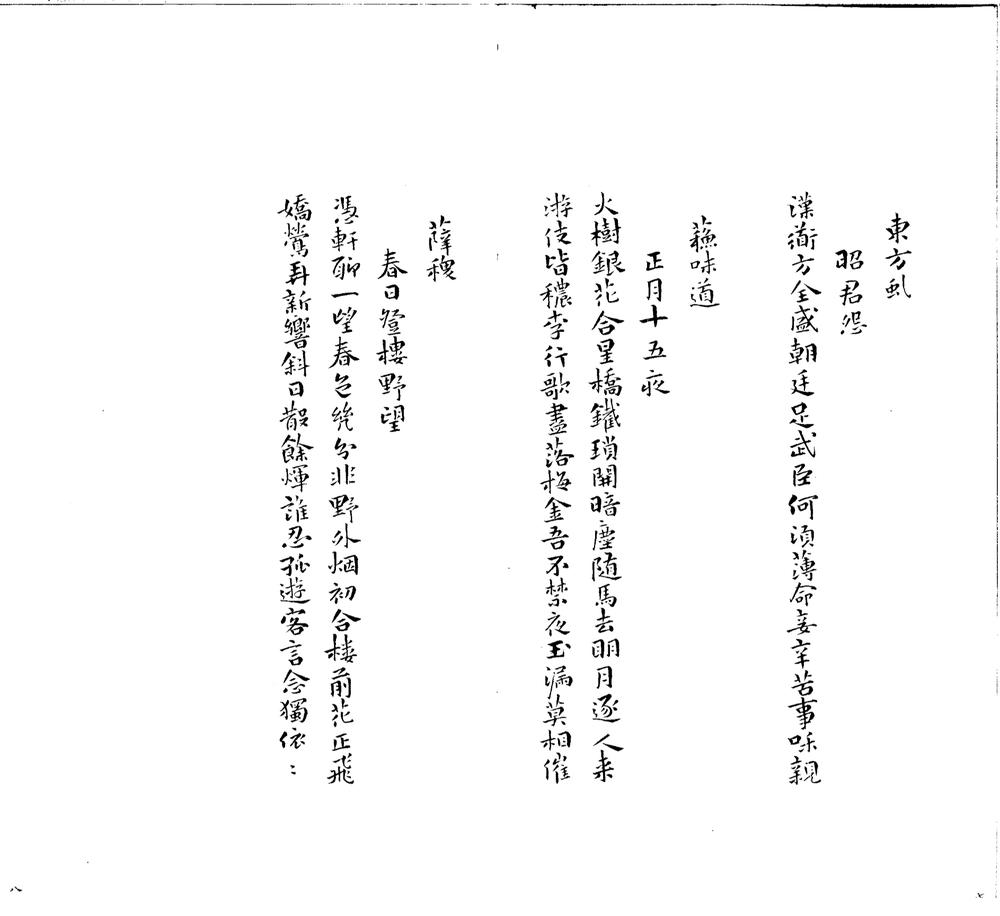 東方虬
昭君怨
漢衟方全盛朝廷足武臣何須薄命妾辛苦事咊親
蘓味道
正月十五夜
火樹銀花合星橋鐵瑣開暗塵随馬去明月逐人来
游伎皆穠李行歌盡落梅金吾不禁夜玉漏莫相催
薛稷
春日登樓野望
憑軒聊一望春色幾分非野外烟初合楼前花正飛
嬌鶯弄新響斜日散餘煇誰忍孤遊客言念獨依〻
七
八